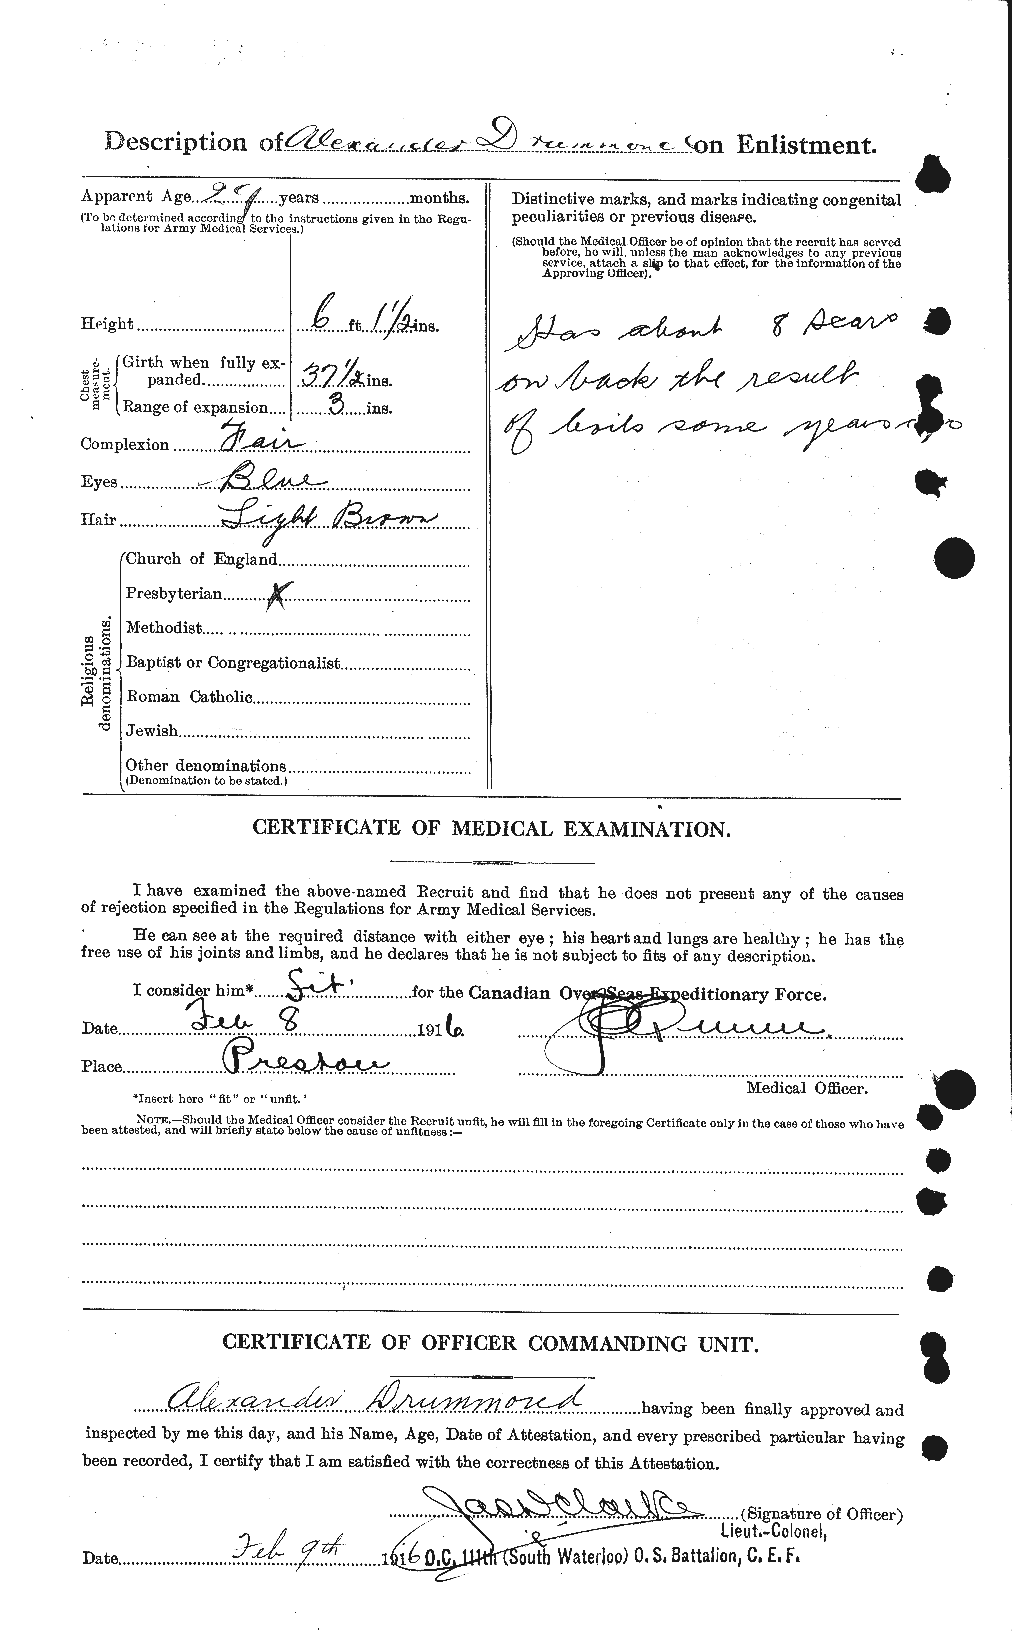 Description of Alexander Drummond on Enlistment.
Apparent Age...29...years..................months.
(To be determined according to the instructions given in the Regu-
lations for Army Medical Services.)
Height.................................6 ft. 1 1/2 ins.
Chest measure-
ment.
Girth when fully ex-
panded..................37 1/2 ins.
Range of expansion.........3......ins.
Complexion..........Fair
Eyes..................Blue
Hair..................Light Brown
Religious
denominations.
Church of England
Presbyterian..........X
Methodist
Baptist or Congregationalist
Roman Catholic
Jewish
Other denominations
(Denomination to be stated.)
Distinctive marks, and marks indicating congenital
peculiarities or previous disease.
(Should the Medical Officer be of opinion that the recruit has served
before, he will, unless the man acknowledges to any previous
service, attach a slip to that effect, for the information of the
Approving Officer).
Has about 8 scars
on back the result
of boils some years ago
CERTIFICATE OF MEDICAL EXAMINATION.
I have examined the above-named Recruit and find that he does not present any of the causes
of rejection specified in the Regulations for Army Medical Services.
He can see at the required distance with either eye; his heart and lungs are healthy; he has the
free use of his joints and limbs, and he declares that he is not subject to fits of any description.
I consider him*......fit..............for the Canadian Over-Seas Expeditionary Force.
Date..........Feb 8..................1916
Place..................Preston
Medical Officer.
*Insert here "fit" or "unfit."
NOTE.—Should the Medical Officer consider the Recruit unfit, he will fill in the foregoing Certificate only in the case of those who have
been attested, and will briefly state below the cause of unfitness:—
CERTIFICATE OF OFFICER COMMANDING UNIT.
......Alexander Drummond..........having been finally approved and
inspected by me this day, and his Name, Age, Date of Attestation, and every prescribed particular having
been recorded, I certify that I am satisfied with the correctness of this Attestation.
Jas D Clarke......(Signature of Officer)
Lieut.-Colonel,
Date..................Feb 9th......1916 O.C. 111th (South Waterloo) O. S. Battalion, C. E. F.